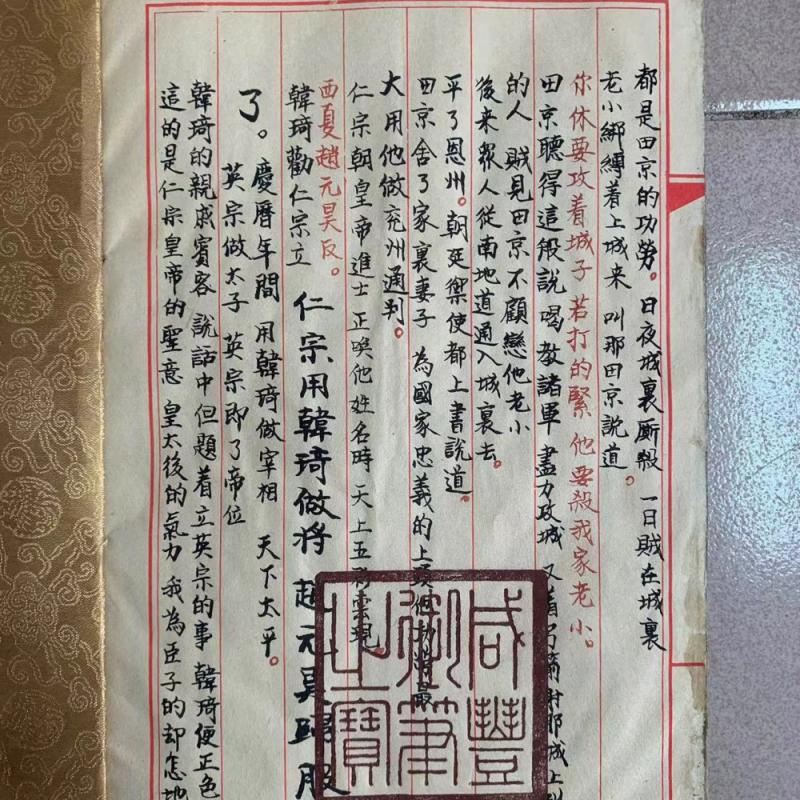 都是田京的功勞。日夜城裏廝殺 一日賊在城裏
老小綁縛着上城来 叫那田京說道。
你休要攻着城子 若打的緊 他要殺我家老小。
田京聽得這般說 喝教諸軍 盡力攻城 又着弓箭射那城上
的人 賊見田京不顧戀他老小
後来衆人從南地道通入城裏去。
平了恩州。朝廷禦使都上書說道
田京舍了家裏妻子 為國家忠義的上頭 最
大用他做兖州通判。
仁宗朝皇帝進士 正喚他姓名時 天上五彩雲現。
西夏趙元昊反。
韓琦勸仁宗立
仁宗用韓琦做将 趙元昊歸服
了。慶曆年間 用韓琦做宰相 天下太平。
英宗做太子 英宗即了帝位
韓琦的親戚賓客 說話中但題着立英宗的事 韓琦便正色
這的是仁宗皇帝的聖意 皇太後的氣力 我為臣子的却怎地
咸豐
御筆
之寶